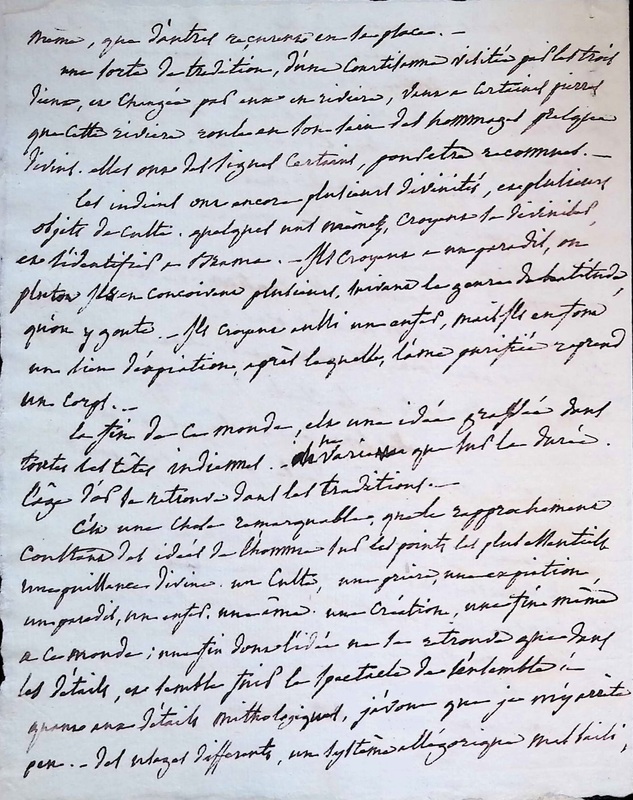 même, que d'autres reçurent en sa place. —
une sorte de tradition, d'une Courtisanne visitée par les trois
dieux, et Changée par eux en riviere, vaut a Certaines pierres
que Cette riviere roule en son sein des hommages presque
divins. elles ont des signes Certains, pour etre reconnues. —
les indiens ont encore plusieurs divinités, et plusieurs
objets de Culte. quelques uns mêmes, Croyent divinités,
et l'identifient a Brama. — Ils Croyent a un paradis, ou
plutot Ils en concoivent plusieurs, suivant le genre de béatitude,
qu'on y goute. — Ils Croyent aussi un enfer, mais Ils en font
un lieu d'expiation, après laquelle, l'ame purifiée reprend
un Corps. —
la fin de Ce monde, est une idée dans
toutes les têtes indiennes. — on ne varie que sur la durée.
l'âge d'or se retrouve dans les traditions. —
C'est une Chose remarquable, que le rapprochement
Constant des idées de l'homme sur les points les plus essentiels
une puissance divine. un Culte, une priere, une expiation,
un paradis, un enfer. une âme. une Création, une fin même
a Ce monde ; une fin dont l'idée ne se retrouve que dans
les détails, et semble fuir le spectacle de l'ensemble. —
quant aux détails mithologiques, j'avoue que je m'y arrête
peu. — des usages differents, un systême allégorique mal saisi,